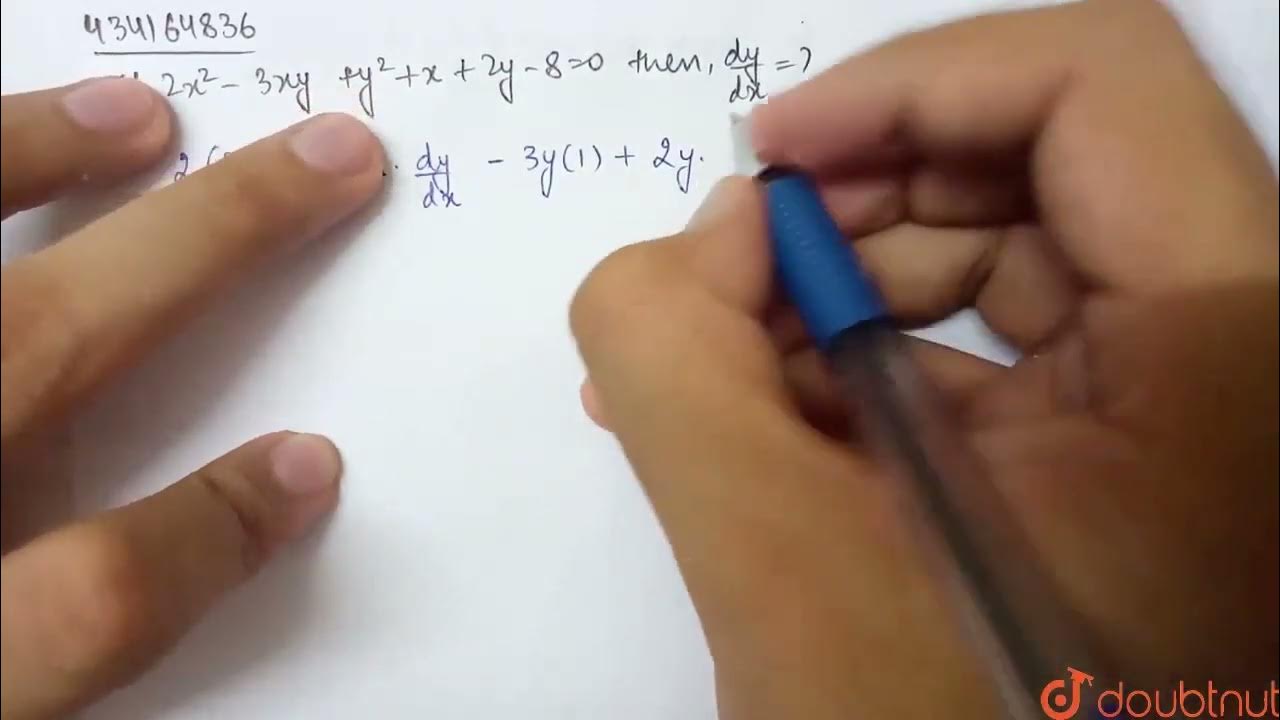 434164836
2x² - 3xy + y² + x + 2y - 8 = 0 then, dy/dx = ?
2 ( . dy/dx - 3y(1) + 2y.
doubtnut